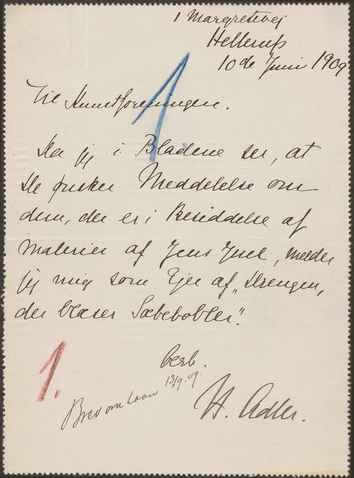 1 Margretevej
Hellerup
10de Juni 1909
Til Kunstforeningen.
Da jeg i Bladene ser, at
De ønsker Meddelelse om
dem, der er i Besiddelse af
Malerier af Jens Juel, melder
jeg mig som Ejer af „Drengen,
der blæser Sæbebobler".
Ærb.
H. Adler.
1
1.
Brev om Laan
13/9 09